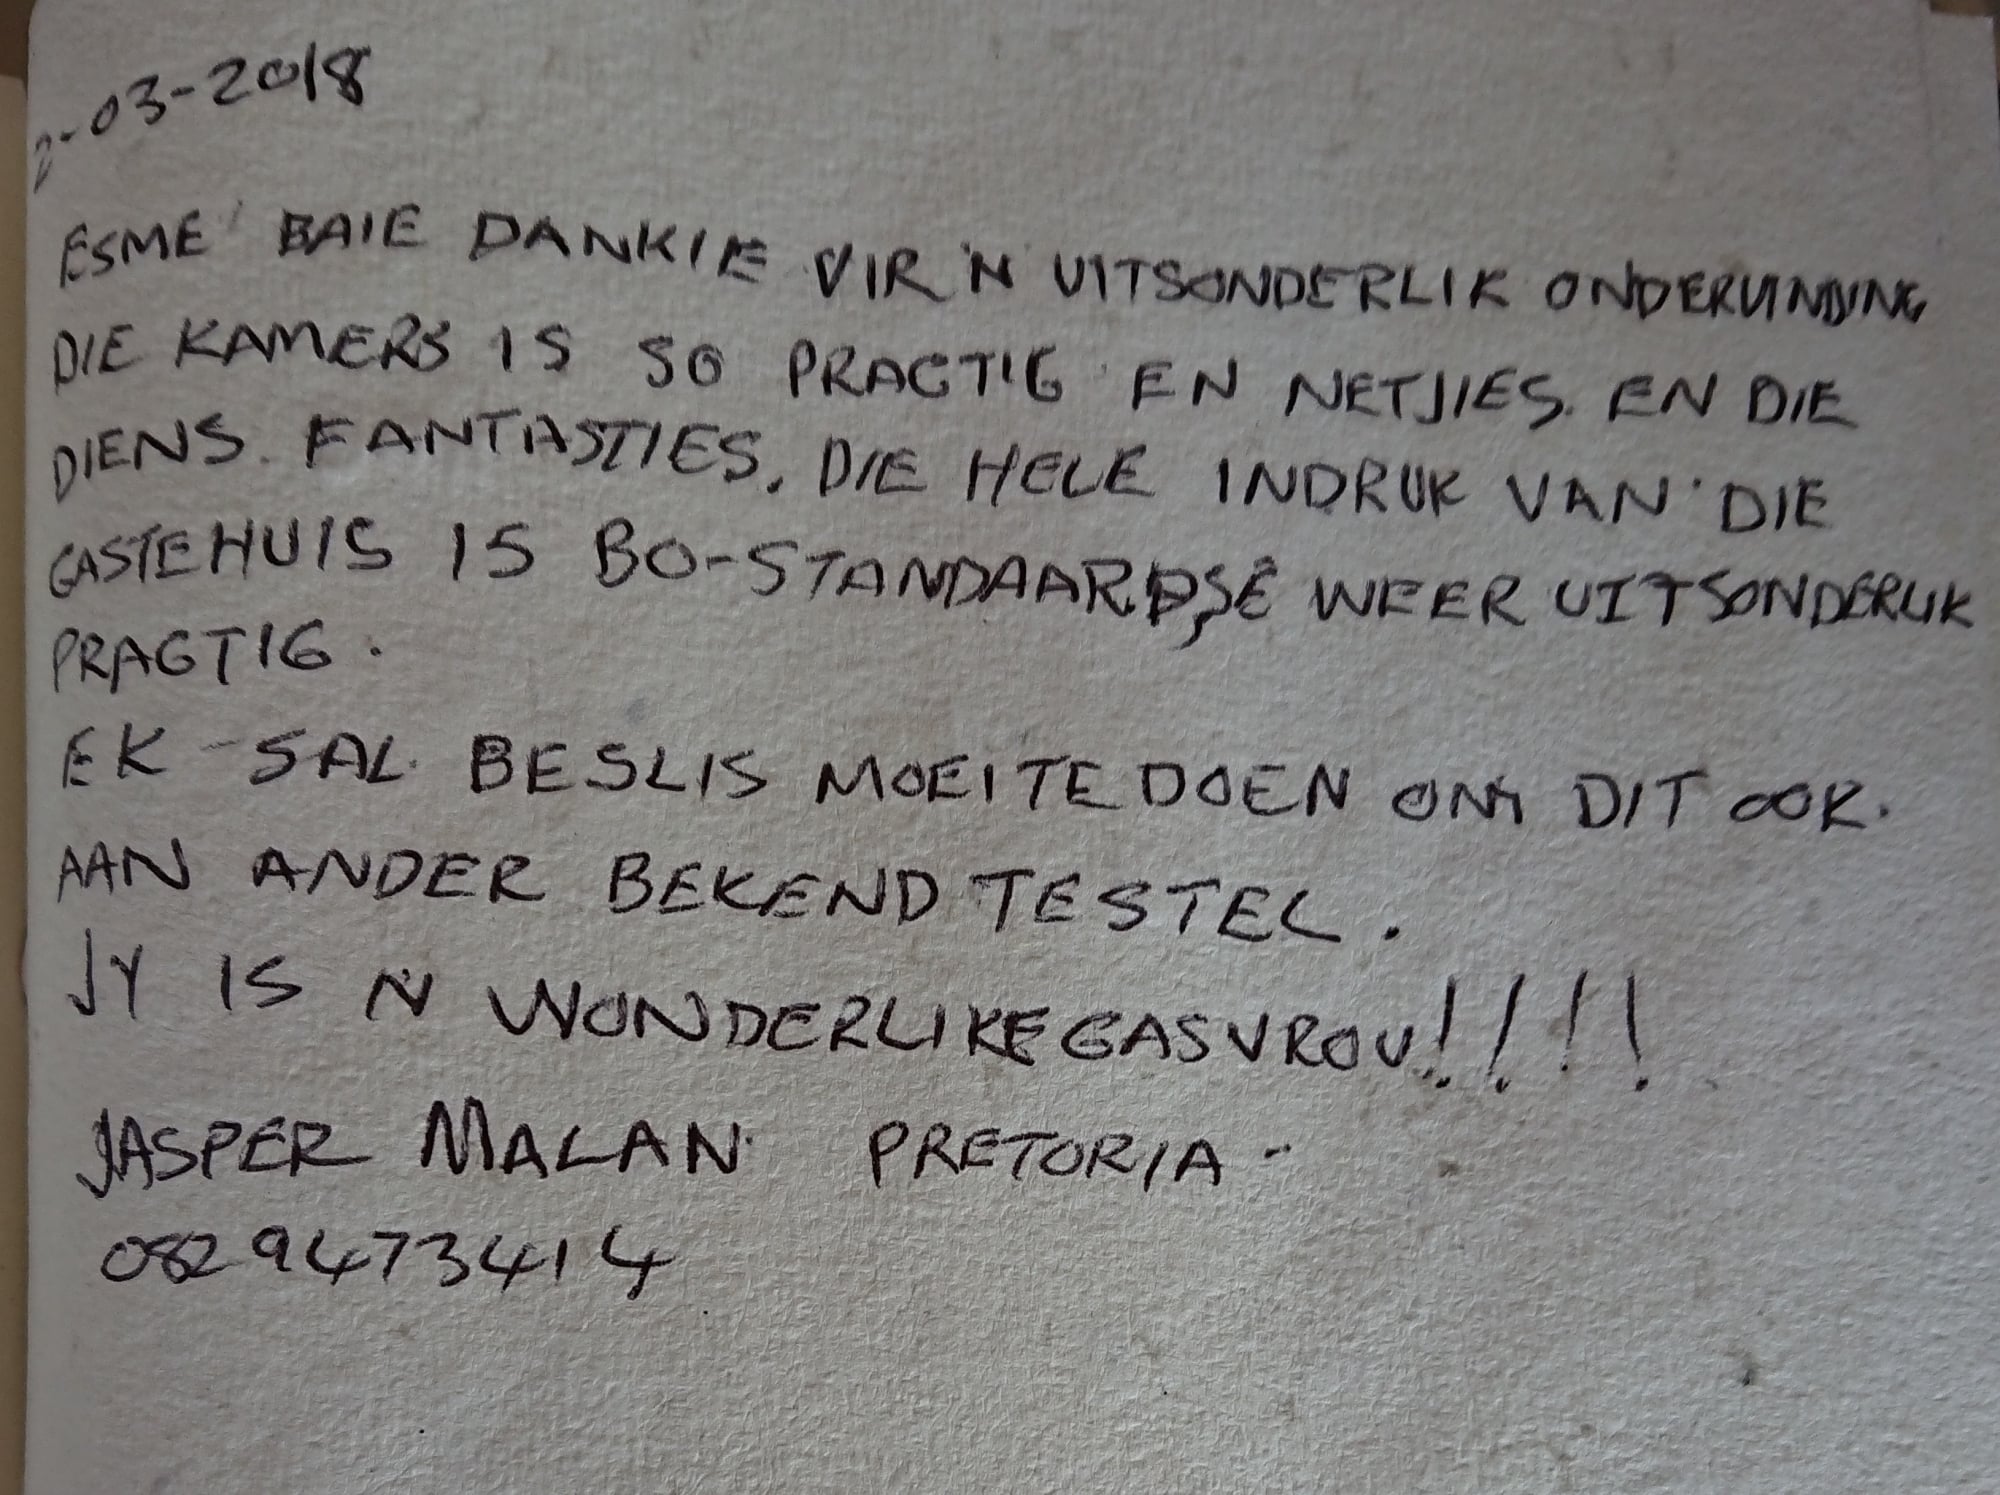 -03-2018
ESME' BAIE DANKIE VIR 'N UITSONDERLIK ONDERVINDING
DIE KAMERS IS SO PRAGTIG EN NETJIES. EN DIE
DIENS. FANTASTIES. DIE HELE INDRUK VAN DIE
GASTEHUIS IS BO-STANDAARD, SÊ WEER UITSONDERLIK
PRAGTIG.
EK SAL BESLIS MOEITE DOEN OM DIT OOK.
AAN ANDER BEKEND TESTEL.
JY IS N WONDERLIKE GASVROU!!!!
JASPER MALAN PRETORIA-
082 9473414